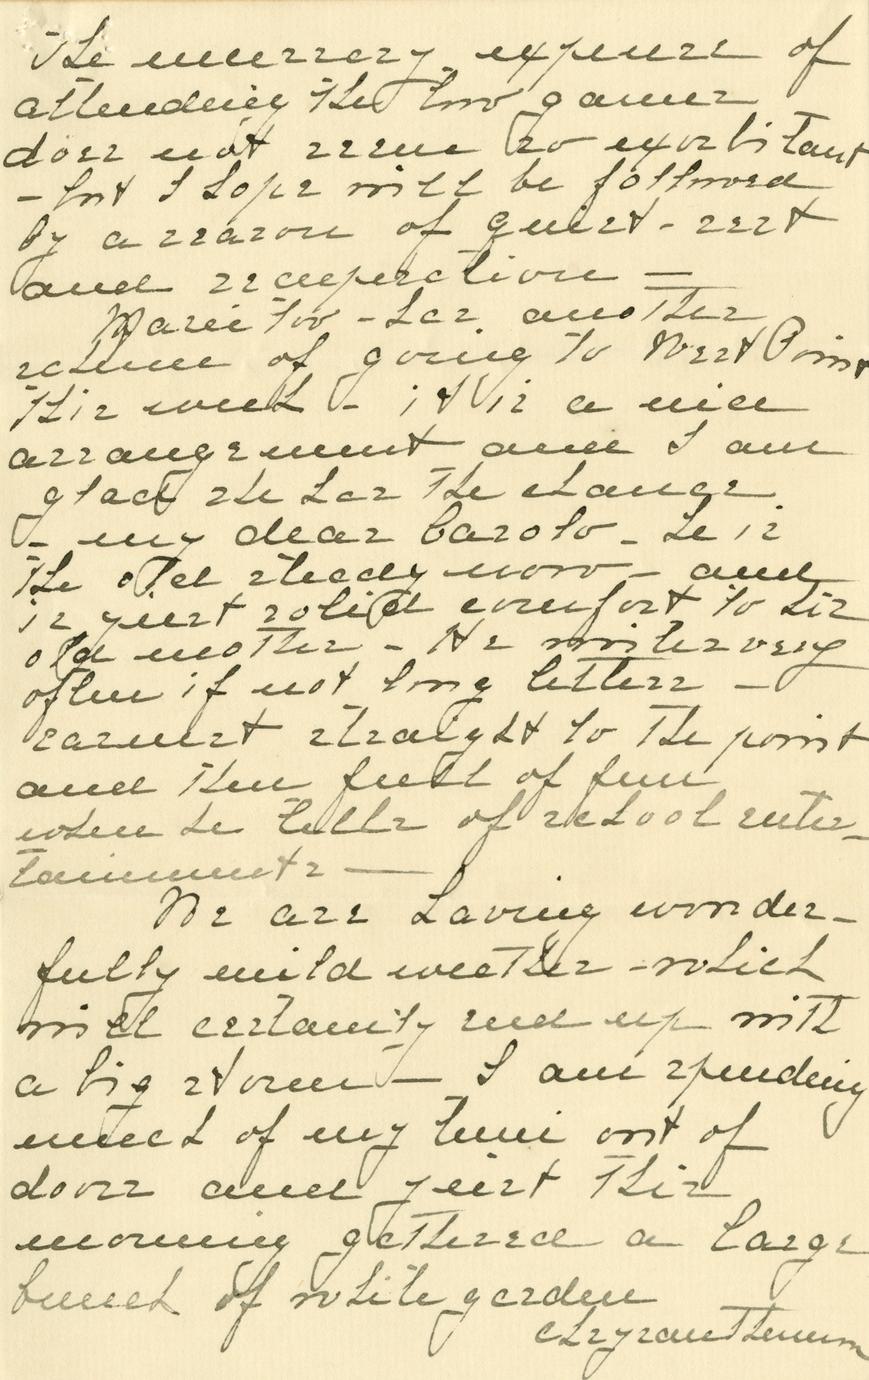 The nervery expense of
attending the two games
does not seem so exorbitant
- but I hope will be followed
by a season of quiet - rest
and recuperation —
Marie too - has another
scheme of going to West Point
this week - it is a nice
arrangement and I am
glad she has the chance
- my dear Barolo - he is
the old steady now - and
is just solid comfort to his
old mother - He writes very
often if not long letters -
earnest straight to the point
and then full of fun
when he tells of school enter-
tainments —
We are having wonder-
fully mild weather - which
will certainly end up with
a big storm — I am spending
much of my time out of
doors and just this
morning gathered a large
bunch of white garden
chrysanthemum